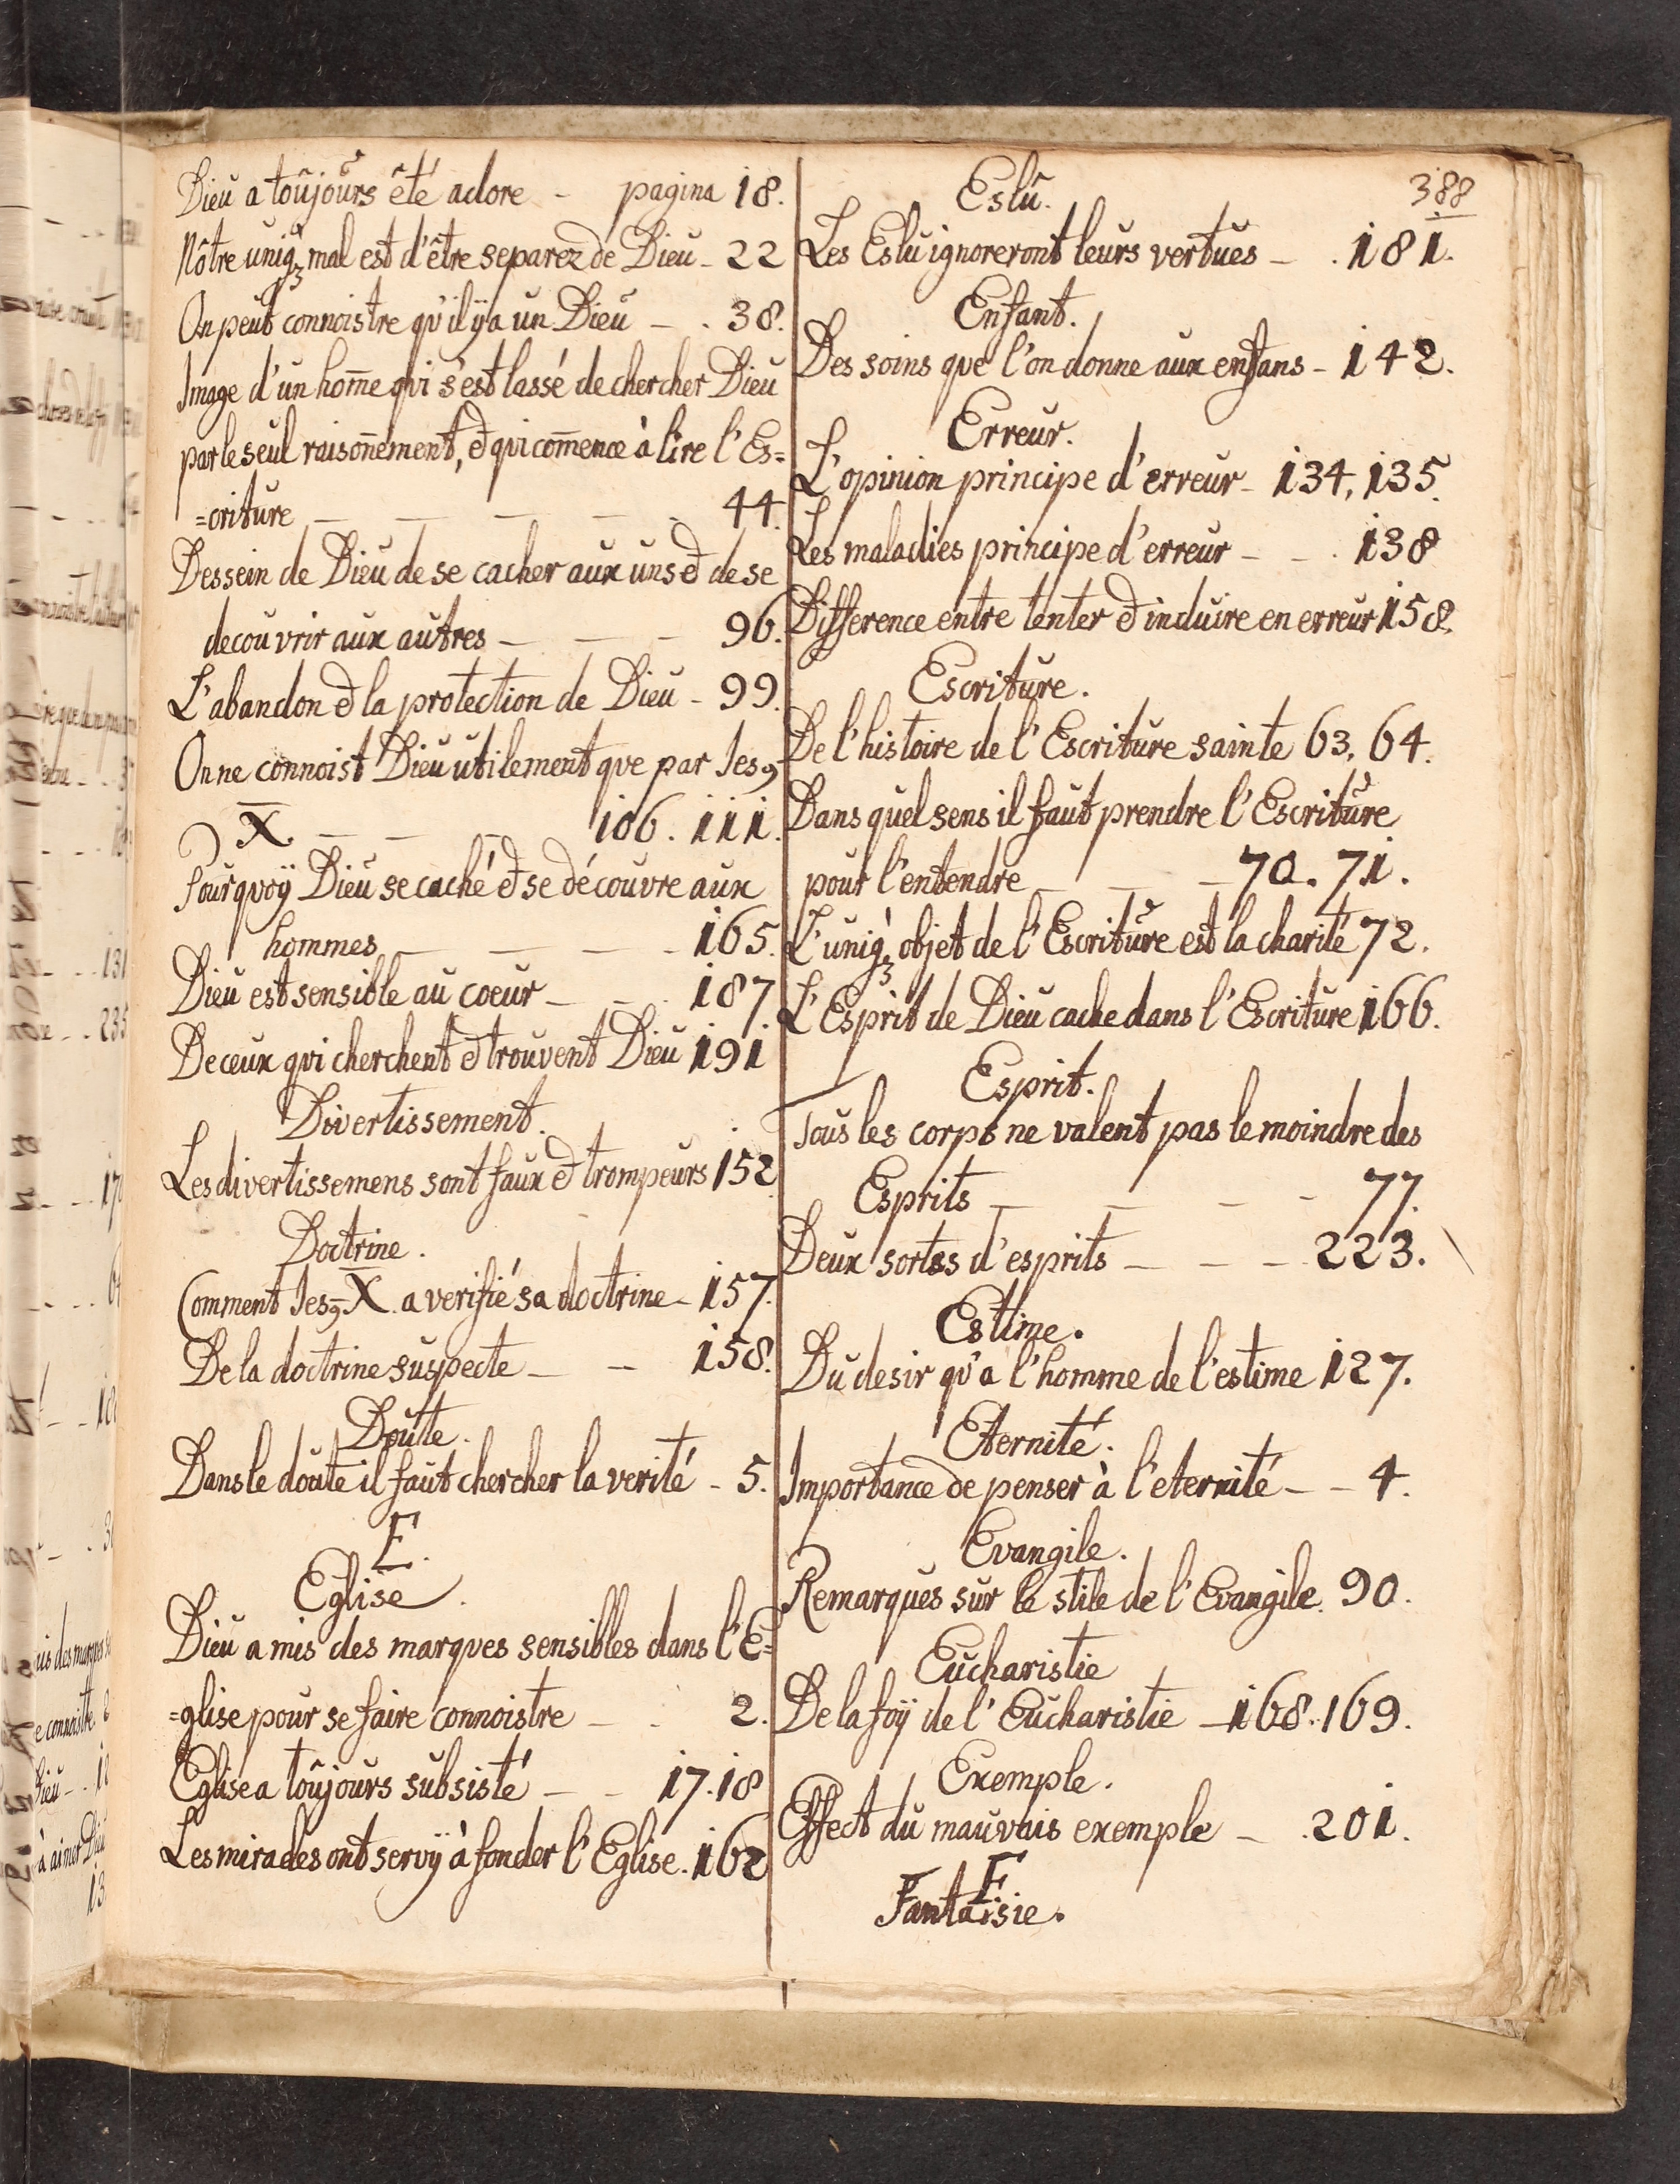 Dieu a toûjours êté adore - pagina 18.
Nôtre uniqȝ mal est d'être separez de Dieu - 22
On peut connoistre qu'il ÿ a un Dieu - . 38.
Image d'un hom̄e qui s'est lassé de chercher Dieu
par le seul raison̄ement, & qui com̄ence à lire l'Es=
=criture - - - - - 44.
Dessein de Dieu de se cacher aux uns & de se
decouvrir aux autres - - - 96.
L'abandon & la protection de Dieu - 99.
On ne connoist Dieu utilement que par Jesꝯ-
X. - - - 106. 111.
Pourquoÿ Dieu se caché & se découvre aux
hommes - - - - 165.
Dieu est sensible au coeur - - . 187
De ceux qui cherchent & trouvent Dieu 191
Divertissement.
Les divertissemens sont faux & trompeurs 152
Doctrine.
Comment Jesꝯ-X. a verifié sa doctrine - 157.
De la doctrine suspecte - - 158.
Doute.
Dans le doute il faut chercher la verité - 5.
E.
Eglise.
Dieu a mis des marques sensibles dans l'E=
=glise pour se faire connoistre - . 2.
Eglise a toûjours subsisté - - 17.18
Les miracles ont servÿ à fonder l'Eglise. 162
388
Eslû.
Les Eslu ignoreront leurs vertues - . 181.
Enfant.
Des soins que l'on donne aux enfans - 142.
Erreur.
L'opinion principe d'erreur - 134, 135.
Les maladies principe d'erreur - - . 138
Difference entre tenter & induire en erreur 158.
Escriture.
De l'histoire de l'Escriture sainte 63, 64.
Dans quel sens il faut prendre l'Escriture
pour l'entendre - - - 70. 71.
L'uniqȝ objet de l'Escriture est la charité 72.
L'Esprit de Dieu cache dans l'Escriture 166.
Esprit.
Tous les corps ne valent pas le moindre des
Esprits - - - - 77.
Deux sortes d'esprits - - - 223.
Estime.
Du desir qu'a l'homme de l'estime 127.
Eternité.
Importance de penser à l'eternité - - 4.
Evangile.
Remarques sur le stile de l'Evangile. 90.
Eucharistie
De la foÿ de l'Eucharistie - 168. 169.
Exemple.
Effect du mauvais exemple - . 201.
F
Fantaisie.